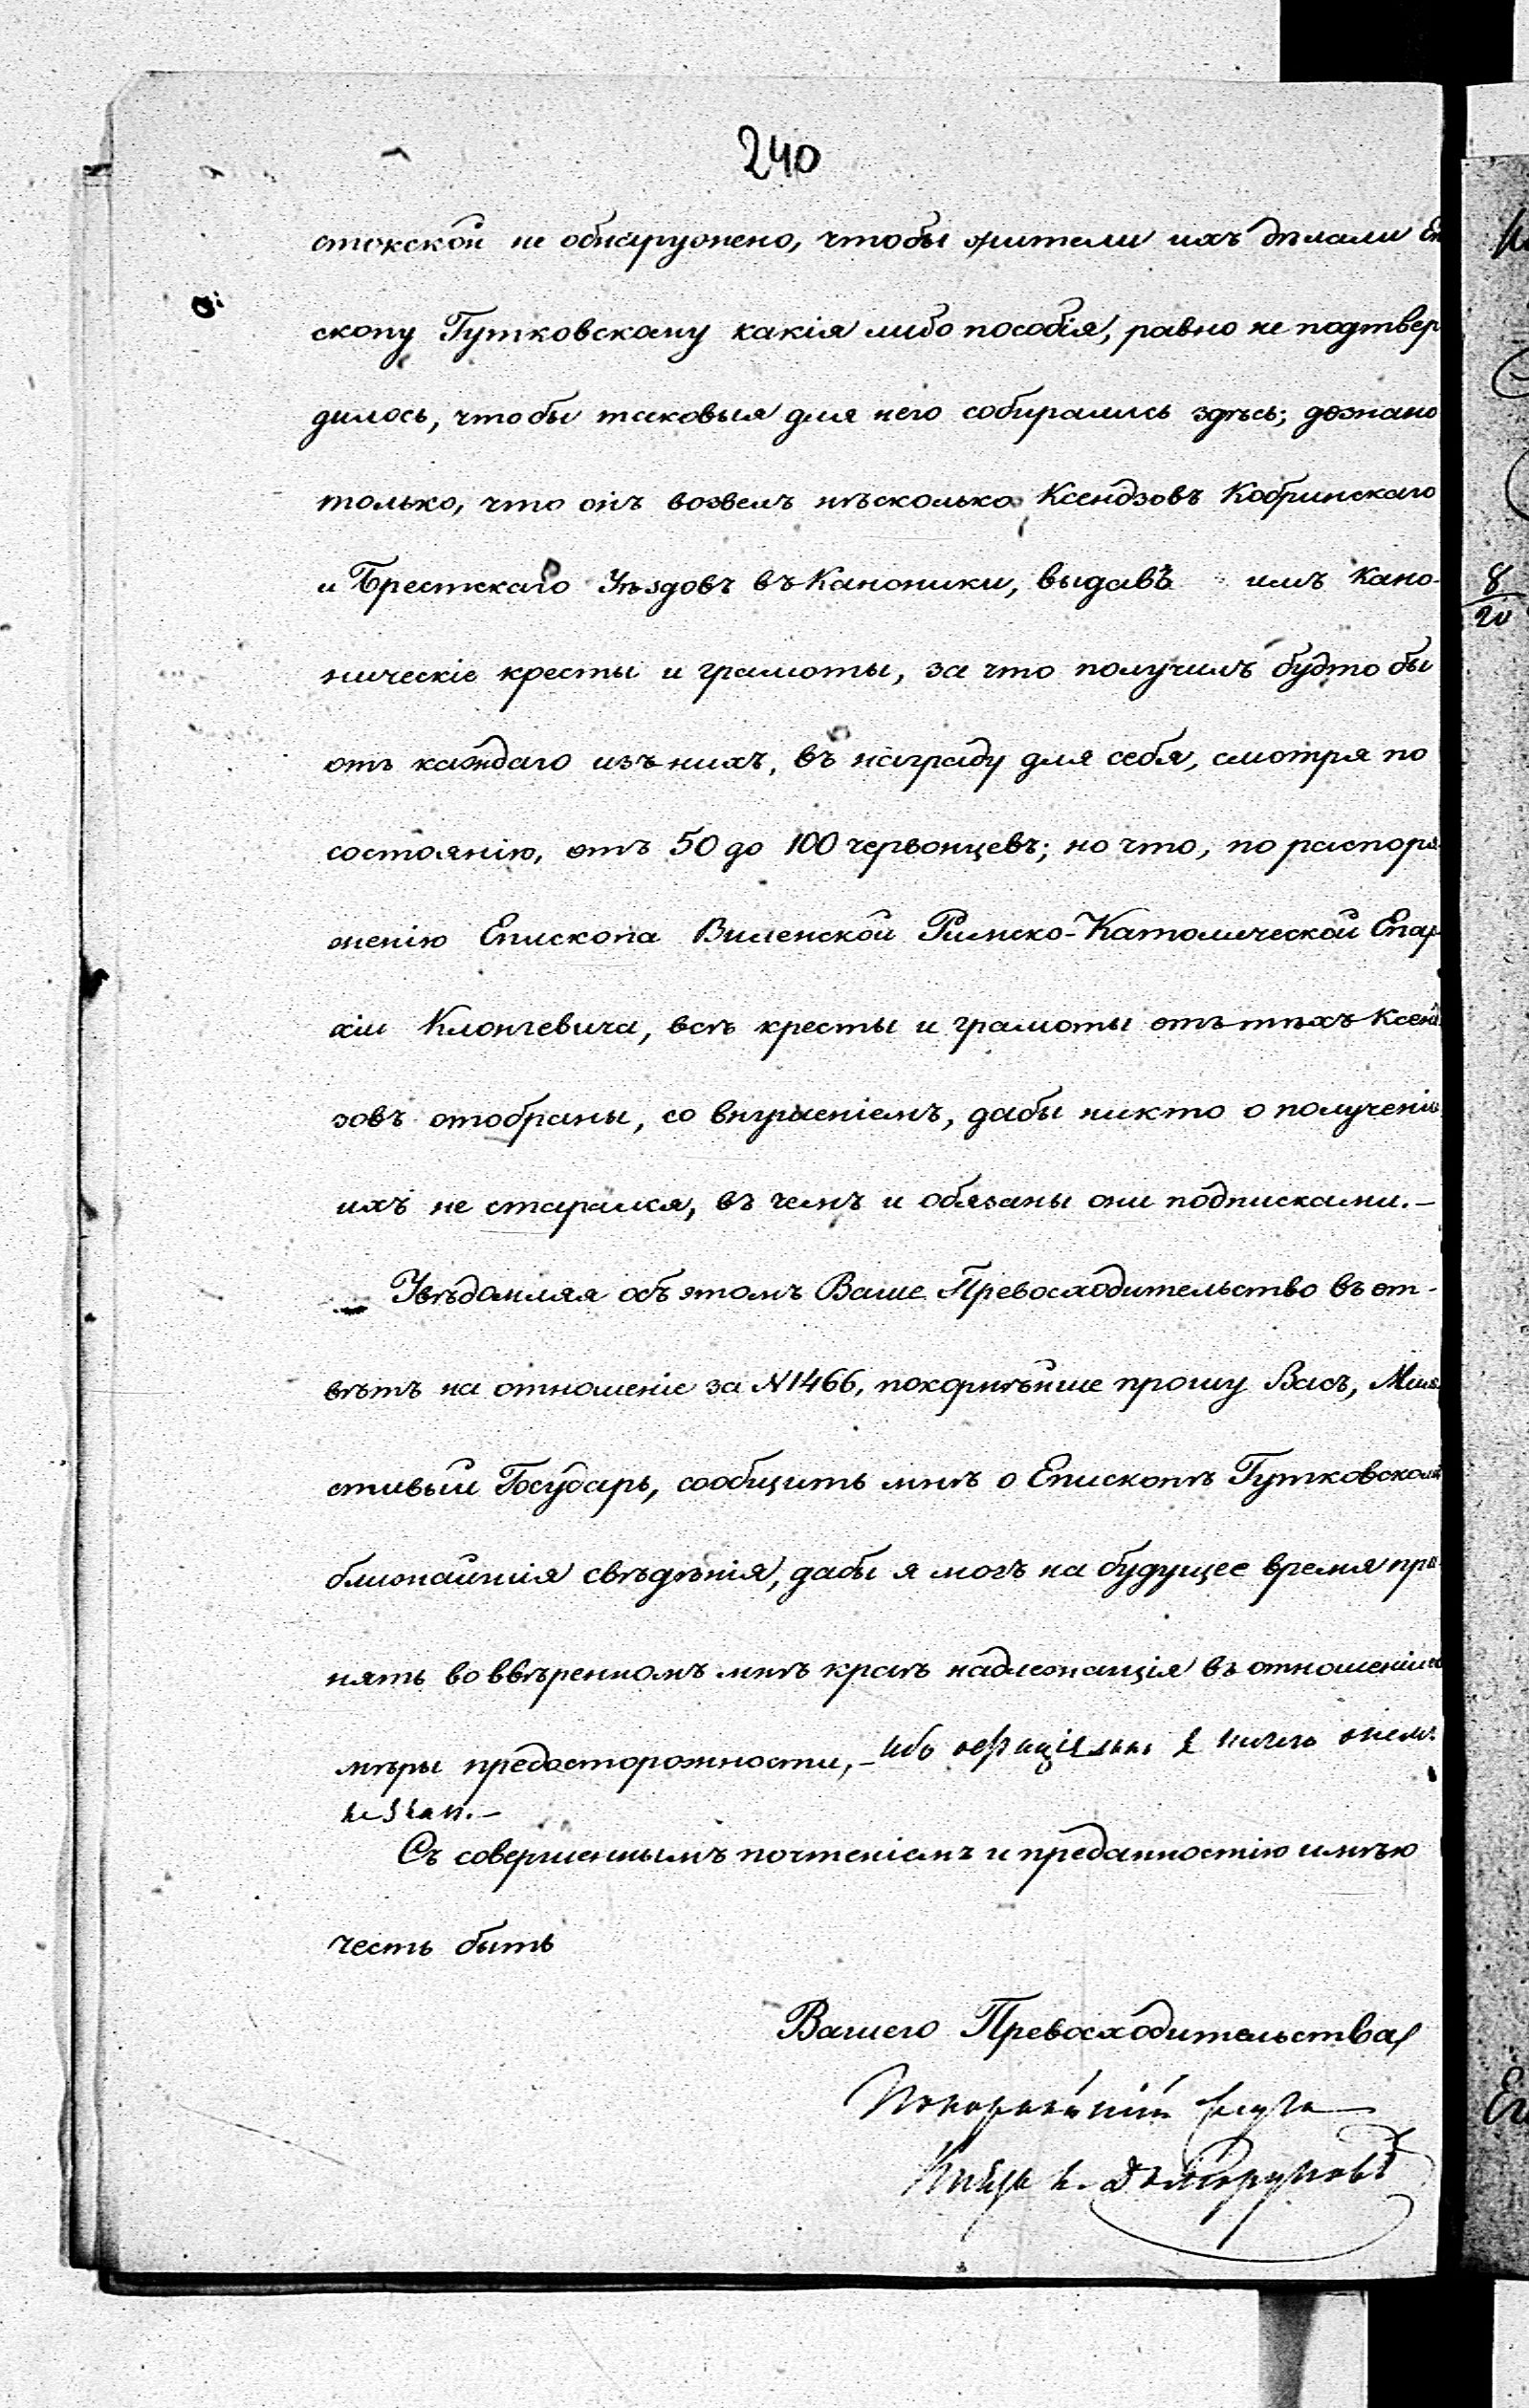 240
стокской не обнаружено, чтобы жители ихъ дѣлали Епи
скопу Гутковскому какія либо пособія, равно не подтвер
дилось, чтобы таковыя для него собирались здѣсь; дознано
только, что онъ возвелъ нѣсколько Ксендзовъ Кобринскаго
и Брестскаго Уѣздовъ въ Каноники, выдавъ имъ Кано-
ническіе кресты и грамоты, за что получилъ будто бы
отъ каждаго изъ нихъ, въ награду для себя, смотря по
состоянію, отъ 50 до 100 червонцевъ; но что, по распоря
женію Епископа Виленской Римско-Католической Епар
хіи Клонгевича, всѣ кресты и грамоты отъ тѣхъ Ксенд
зовъ отобраны, со внушеніемъ, дабы никто о полученіи
ихъ не старался, въ чемъ и обязаны они подписками.—
Увѣдомляя объ этомъ Ваше Превосходительство въ от-
вѣтъ на отношеніе за N1466, покорнѣйше прошу Васъ, Мило
стивый Государь, сообщить мнѣ о Епископѣ Гутковскомъ
ближайшія свѣдѣнія, дабы я могъ на будущее время при
нять во ввѣренномъ мнѣ краѣ надлежащія въ отношеніи
мѣры предосторожности,— ибо офиціально я ничего о немъ
не знаю.—
Съ совершеннымъ почтеніемъ и преданностію имѣю
честь быть
Вашего Превосходительства
Покорнѣйшій слуга
Князь Н. Долгоруковъ
8
20